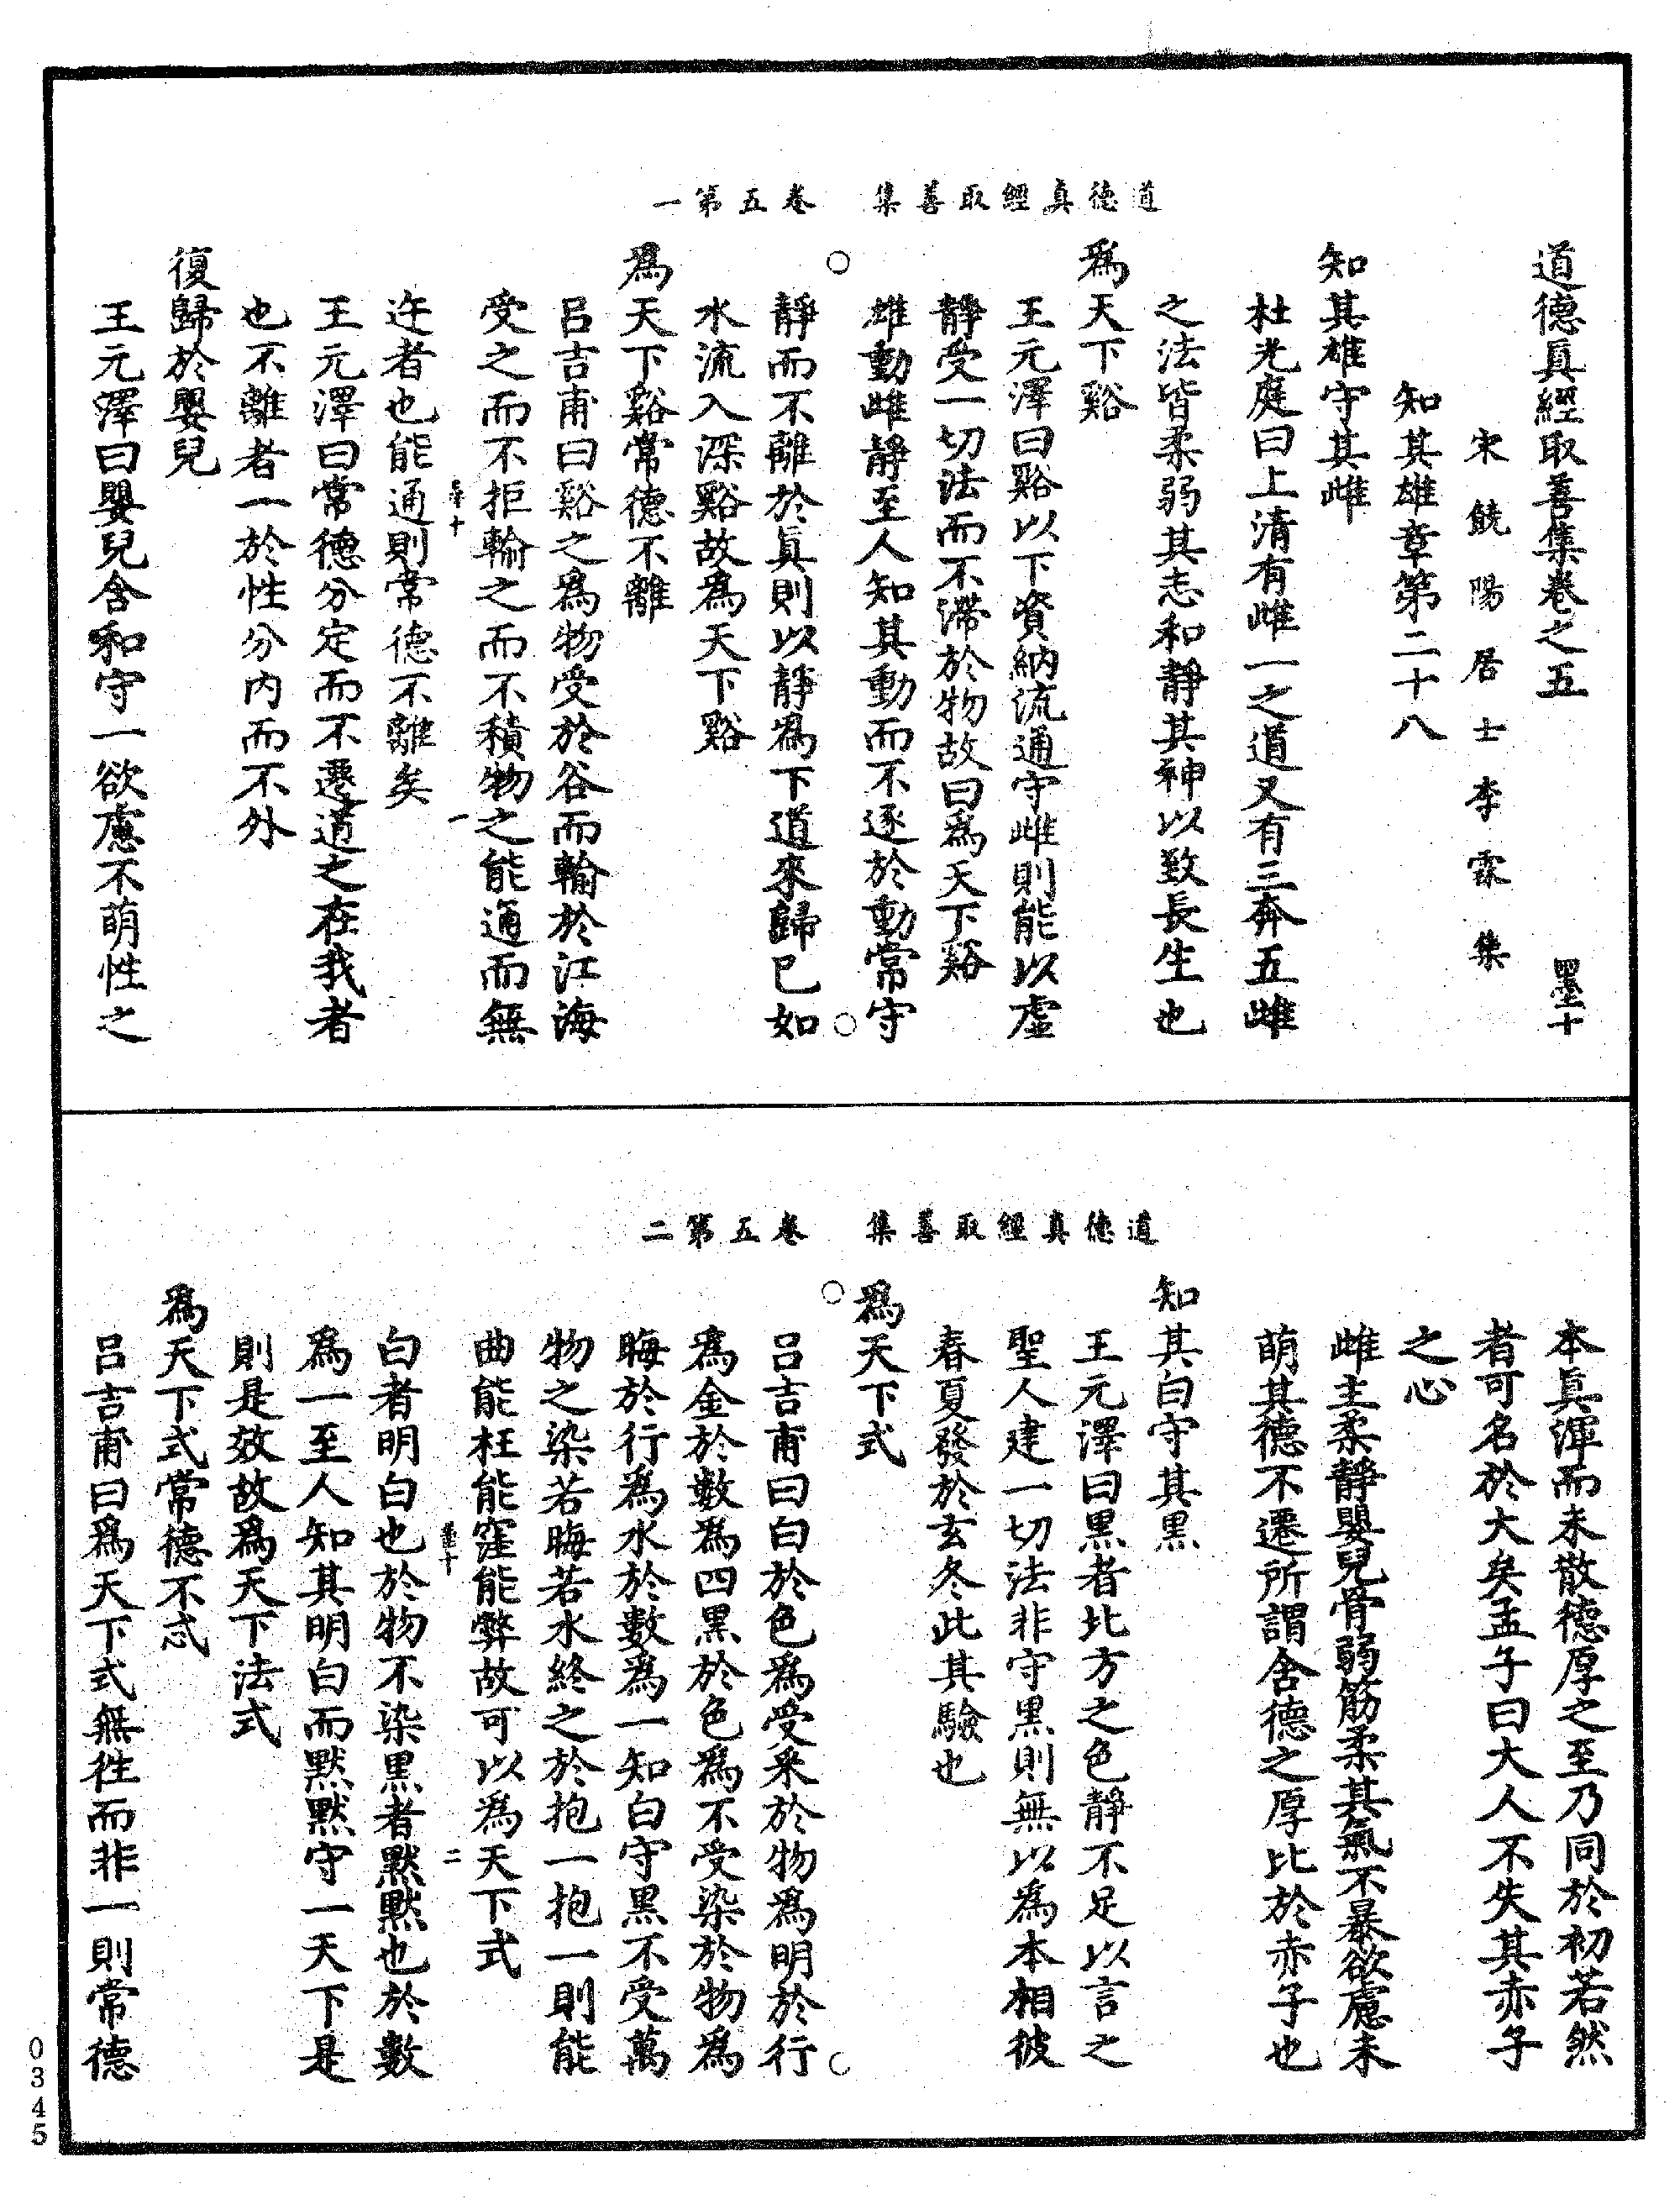 道德真經取善集　卷五第一
道德真經取善集卷之五　墨十
宋饒陽居士李霖集
知其雄章第二十八
知其雄守其雌
杜光庭曰上清有雌一之道又有三奔五雌
之法皆柔弱其志和靜其神以致長生也
爲天下谿
王元澤曰谿以下資納流通守雌則能以虛
靜受一切法而不滯於物故曰爲天下谿
雄動雌靜至人知其動而不逐於動常守
靜而不離於真則以靜爲下道來歸已如
水流入深谿故爲天下谿
爲天下谿常德不離
呂吉甫曰谿之爲物受於谷而輸於江海
受之而不拒輸之而不積物之能通而無
迕者也能通則常德不離矣
王元澤曰常德分定而不遷道之在我者
也不離者一於性分内而不外
復歸於嬰兒
王元澤曰嬰兒含和守一欲慮不萌性之
道德真經取善集　卷五第二
本真渾而未散德厚之至乃同於初若然
者可名於大矣孟子曰大人不失其赤子
之心
雌主柔靜嬰兒骨弱筋柔其氣不暴欲慮未
萌其德不遷所謂含德之厚比於赤子也
知其白守其黒
王元澤曰黒者北方之色靜不足以言之
聖人建一切法非守黒則無以爲本相彼
春夏發於玄冬此其驗也
爲天下式
呂吉甫曰白於色爲受采於物爲明於行
爲金於數爲四黒於色爲不受染於物爲
晦於行爲水於數爲一知白守黒不受萬
物之染若晦若水終之於抱一抱一則能
曲能枉能窪能弊故可以爲天下式
墨十　二
白者明白也於物不染黒者默默也於數
爲一至人知其明白而默默守一天下是
則是效故爲天下法式
爲天下式常德不忒
呂吉甫曰爲天下式無往而非一則常德
0345